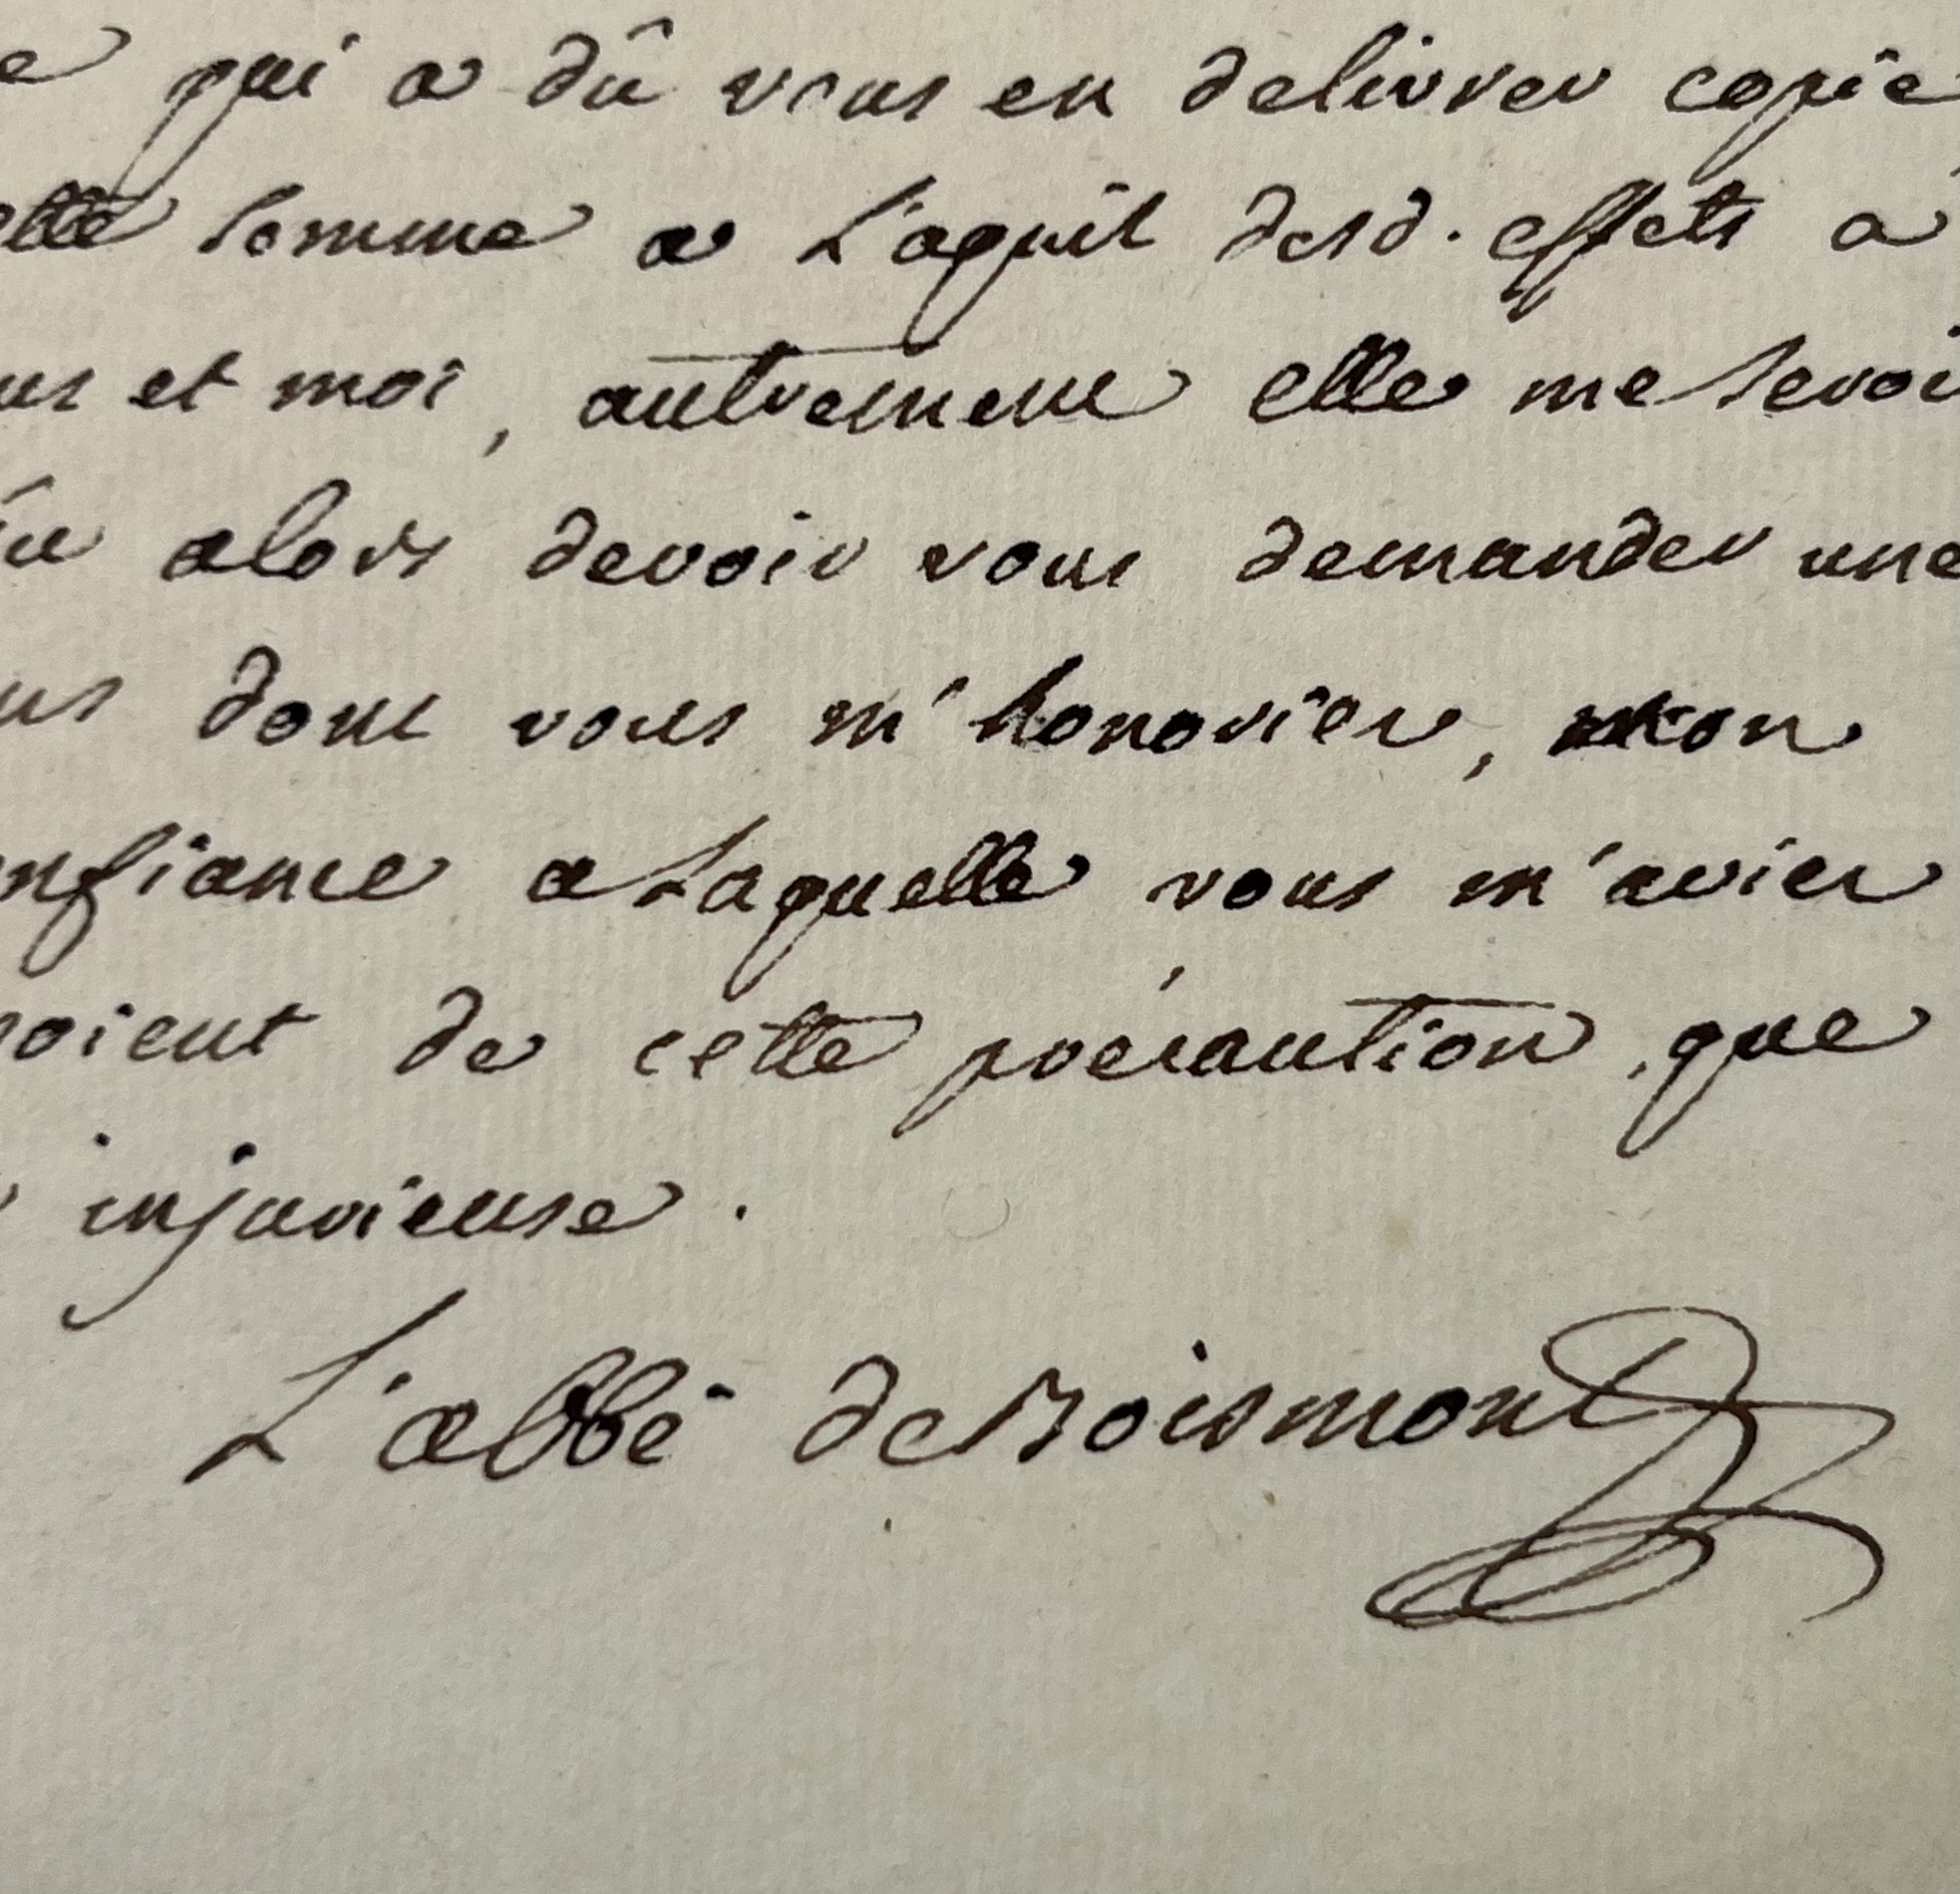 e qui a dû vous en delivrer copie
ette somme a L'aquit desd. effets a
us et moi, autrement elle me seroi
û alors devoir vous demander une
us dont vous m'honoriez, mon
nfiance a Laquelle vous m'aviez
oient de cette précaution, que
injurieuse.
L'abbé de Boismont